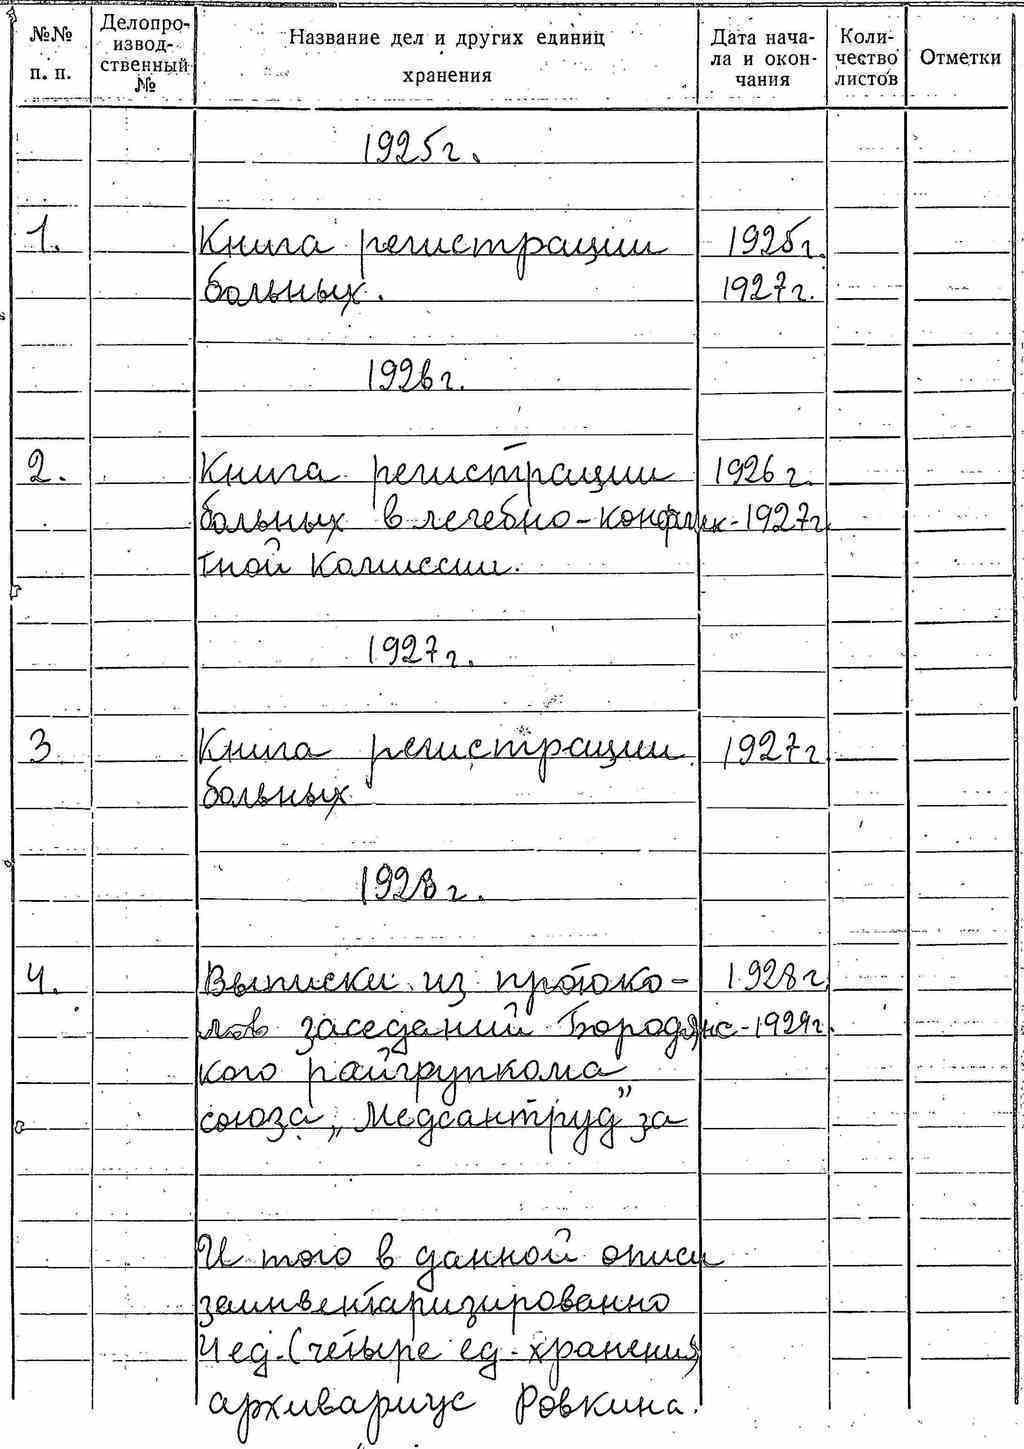 №№ п. п.
Делопро-
извод-
ственный
№
Название дел и других единиц
хранения
Дата нача-
ла и окон-
чания
Коли-
чество
листов
Отметки
1925г.
1. Книга регистрации 1925г.
больных. 1927г.
1926г.
2. Книга регистрации 1926г.
больных в лечебно-конфлик-1927г
тной комиссии.
1927г.
3 Книга регистрации 1927г
больных
1928г.
4. Выписки из протоко- 1928г
лов заседаний Бородянс-1929г.
кого райгрупкома
союза „Медсантруд" за
И того в данной описи
заинвентаризированно
4 ед. (четыре ед. хранения)
архивариус Ровкина.